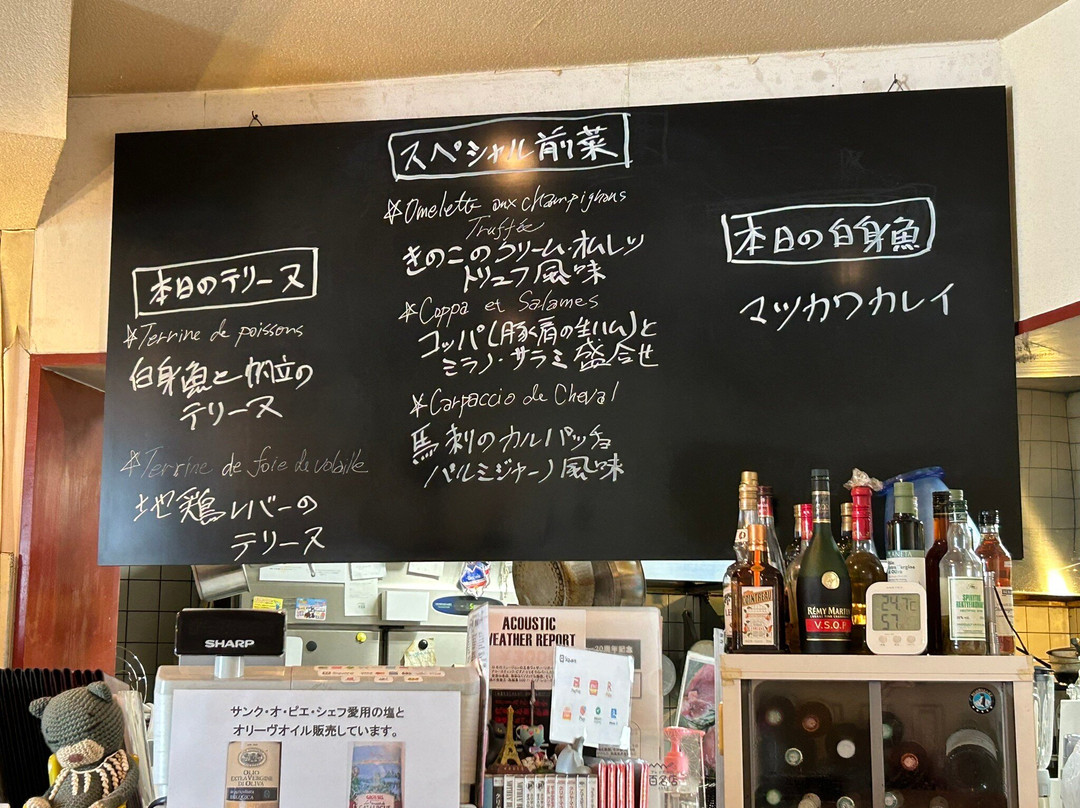 本日のテリーヌ
☆Terrine de poissons
白身魚と帆立の
テリーヌ
☆Terrine de foie de volaille
地鶏レバーの
テリーヌ
スペシャル前菜
☆Omelette aux champignons
Truffée
きのこのクリーム・オムレツ
トリュフ風味
☆Coppa et Salames
コッパ(豚肩の生ハム)と
ミラノ・サラミ盛合せ
☆Carpaccio de Cheval
馬刺のカルパッチョ
パルミジャーノ風味
本日の白身魚
マツカワカレイ
SHARP
サンク・オ・ピエ・シェフ愛用の塩と
オリーヴオイル販売しています。
OLIO
EXTRA VERGINE
DI OLIVA
ACOUSTIC
WEATHER REPORT
COINTREAU
RÉMY MARTIN
V.S.O.P
PLANETA
24.7℃
57
百名店